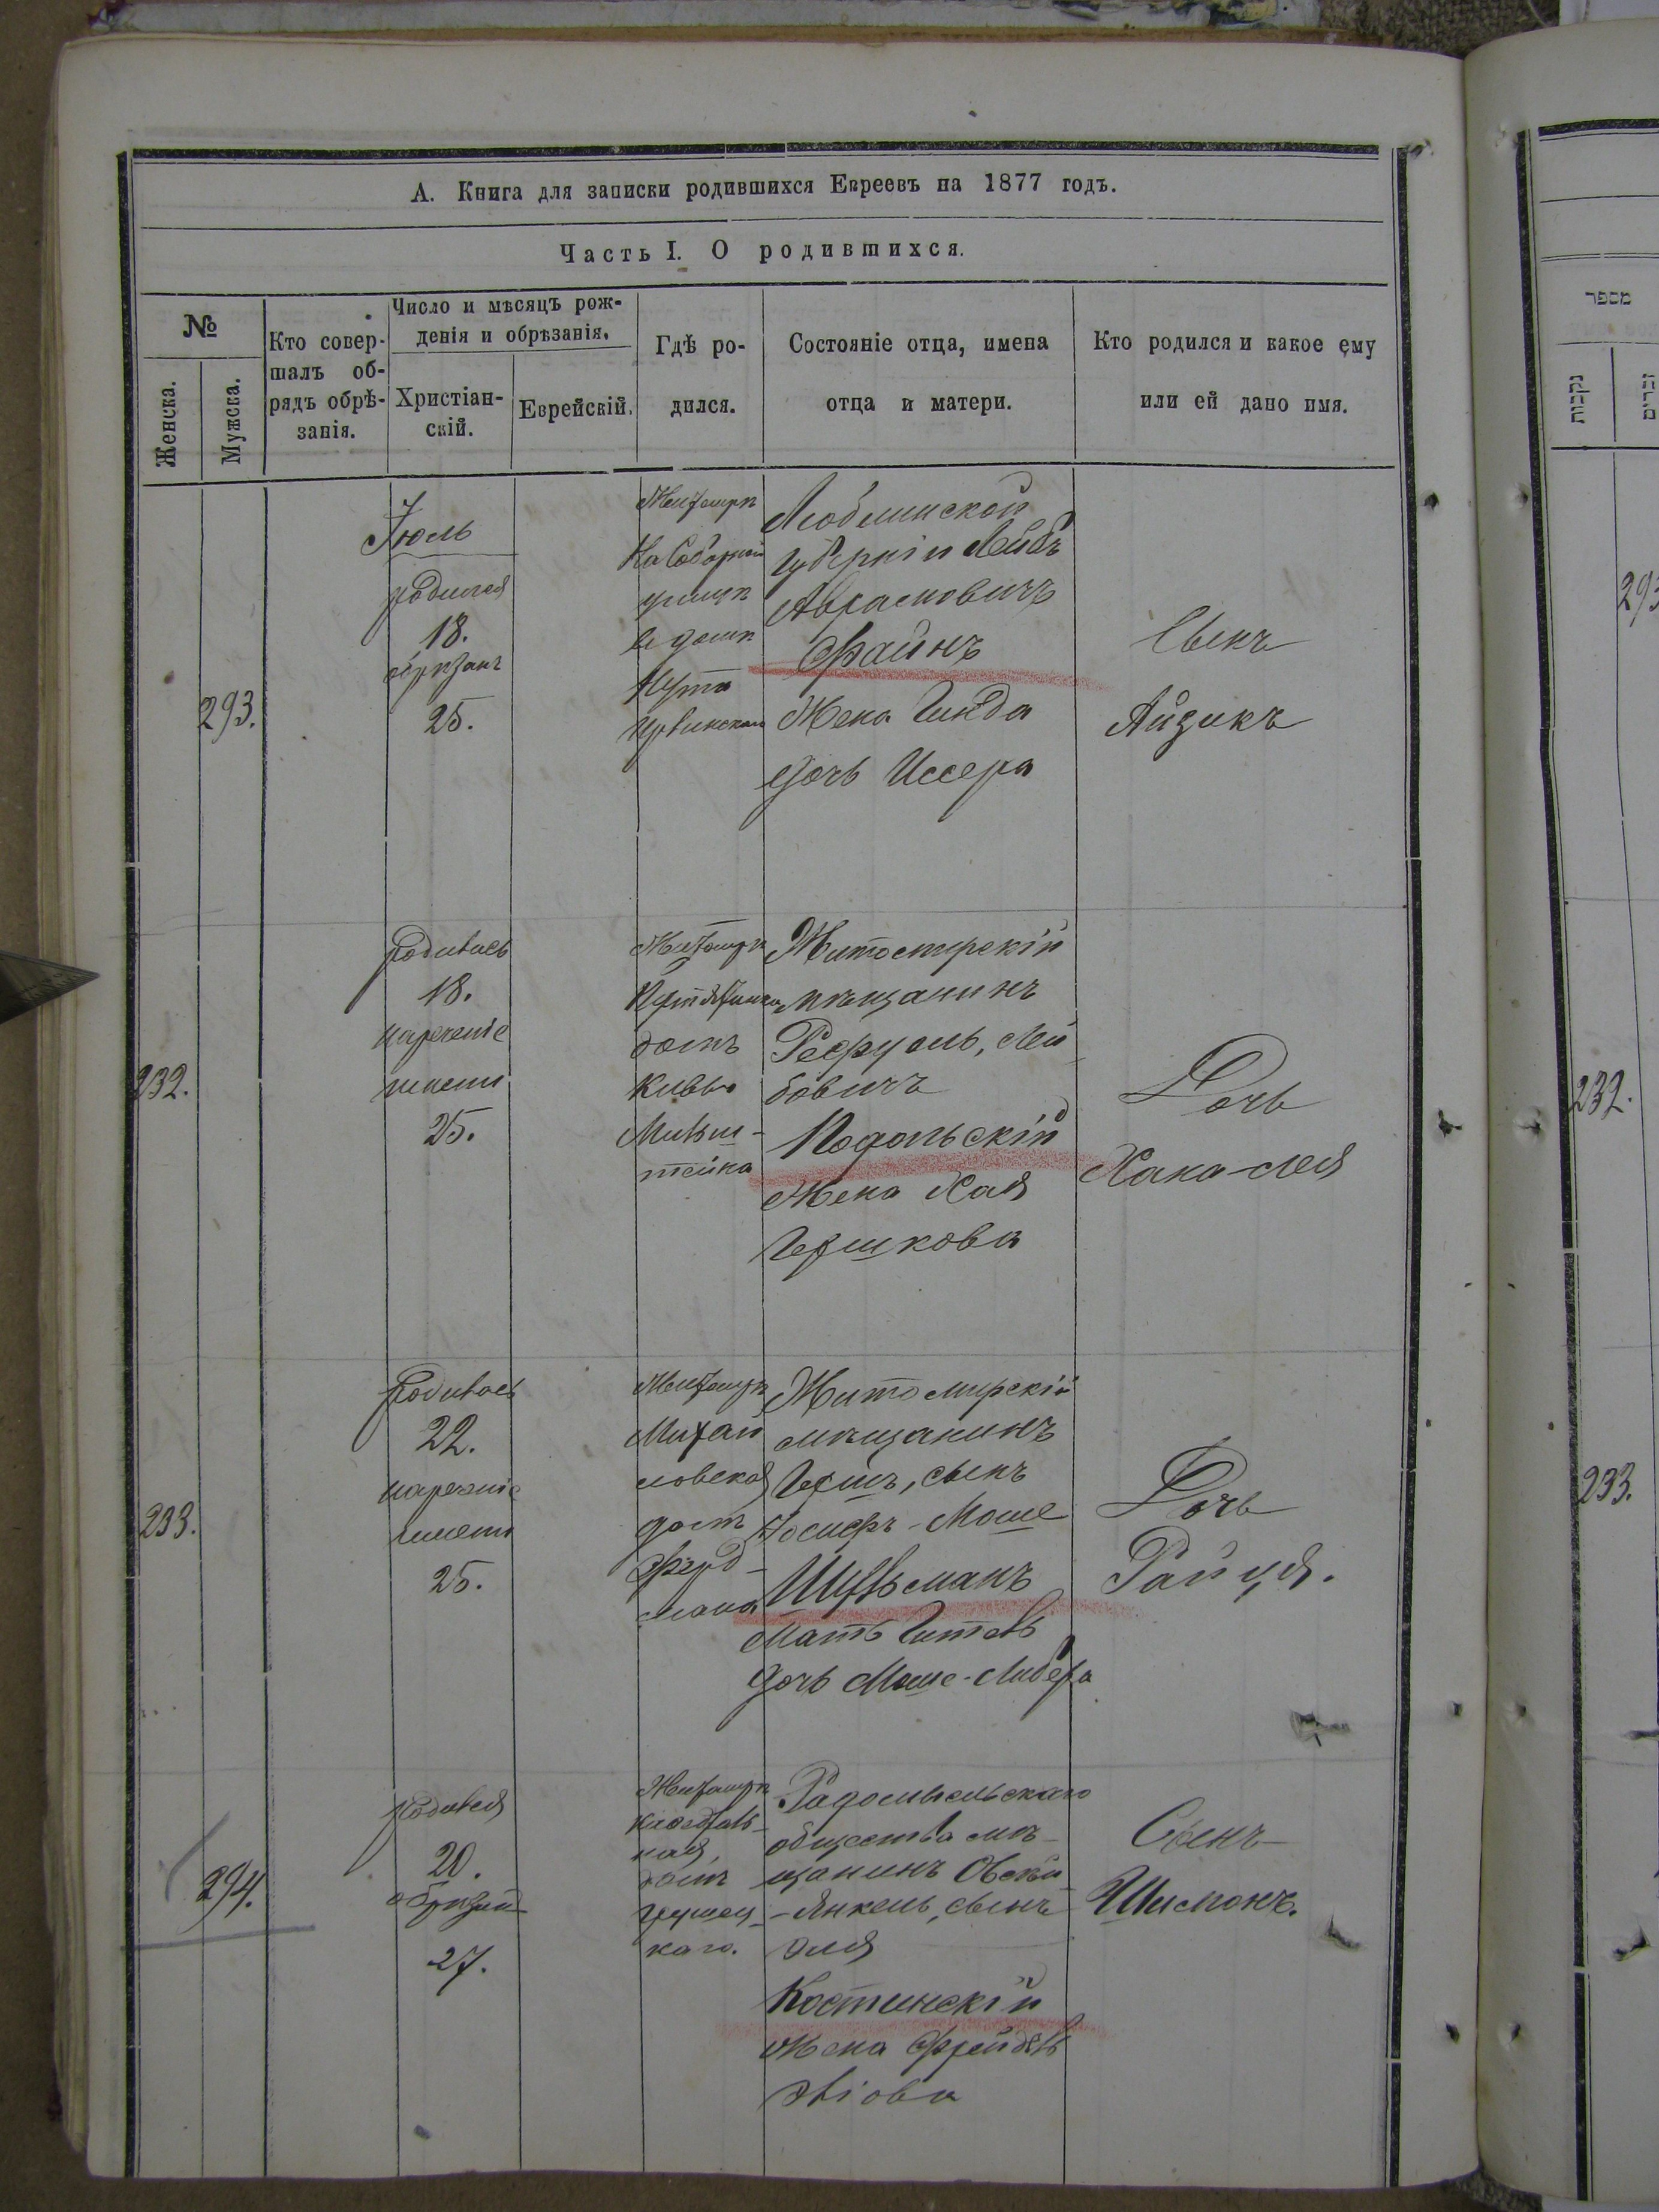 А. Книга для записки родившихся Евреевъ на 1877 годъ.
Часть I. О родившихся.
№
Женска.
Мужска.
Кто совер-
шалъ об-
рядъ обрѣ-
занія.
Число и мѣсяцъ рож-
денія и обрѣзанія.
Христіан-
скій.
Еврейскій.
Гдѣ ро-
дился.
Состояніе отца, имена
отца и матери.
Кто родился и какое ему
или ей дано имя.
293.
Іюль
родился
18.
обрѣзанъ
25.
Житомирѣ
На Соборной
улицѣ
въ домѣ
Люблинской
губерніи Лейбъ
Аврамовичъ
Файнъ
Жена Гинда
дочь Иссера
Сынъ
Айзикъ
232.
родилась
18.
нареченіе
имени
25.
Житомирѣ
домъ
Мильш-
тейна
Житомирскій
мѣщанинъ
Рефуель, Лей
бовичъ
Подольскій
Жена Хая
Гершкова
Дочь
Хана-Лея
233.
родилась
22.
нареченіе
имени
25.
Житомирѣ
Михай
ловская
домъ
Ферд-
мана
Житомирскій
мѣщанинъ
Гершъ, сынъ
Іосифъ-Моше
Шульманъ
Мать Гитель
дочь Моше-Либера
Дочь
Райця.
294.
родился
20.
обрѣзанъ
27.
Житомирѣ
ная,
домъ
каго.
Радомысльскаго
общества мѣ-
щанинъ Овсѣй
-Янкель, сынъ
Эля
Костинскій
жена Фрейдель
Сынъ
Шимонъ.
מספר
נקבות
זכרים
293
232.
233.